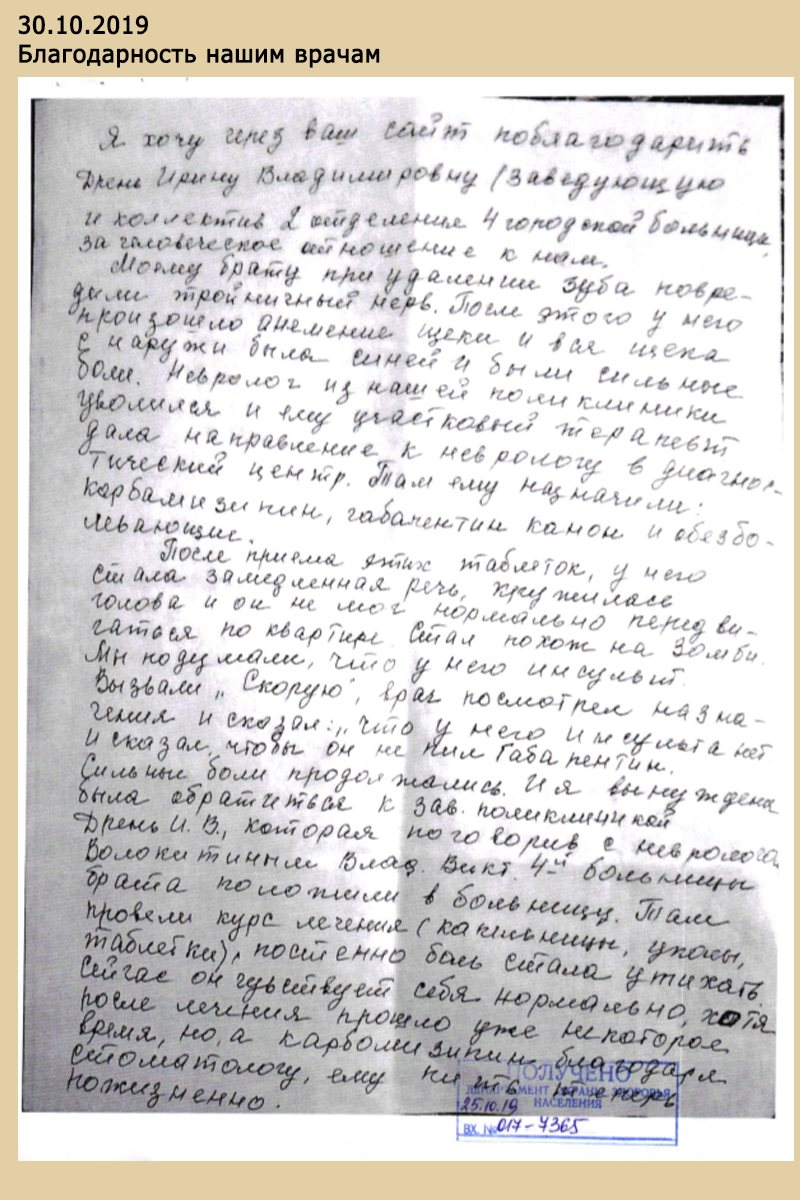 30.10.2019
Благодарность нашим врачам
Я хочу через ваш сайт поблагодарить
Дрень Ирину Владимировну (заведующую
и коллектив 2 отделения 4 городской больницы
за человеческое отношение к нам.
Моему брату при удалении зуба повре-
дили тройничный нерв. После этого у него
произошло анемение щеки и вся щека
с наружи была синей и были сильные
боли. Невролог из нашей поликлиники
уволился и ему участковый терапевт
дала направление к неврологу в диагнос-
тический центр. Там ему назначили:
карбамизипин, габапентин канон и обезбо-
левающие.
После приема этих таблеток, у него
стала замедленная речь, кружилась
голова и он не мог нормально передви-
гаться по квартире. Стал похож на зомби.
Мы подумали, что у него инсульт.
Вызвали „Скорую", врач посмотрел назна-
чения и сказал: „что у него инсульта нет
и сказал, чтобы он не пил Габапентин.
Сильные боли продолжались. И я вынуждена
была обратиться к зав. поликлиникой
Дрень И.В., которая поговорив с неврологом
Волокитиным Влад. Викт. 4-й больницы
брата положили в больницу. Там
провели курс лечения (капельницы, уколы,
таблетки), постенно боль стала утихать.
Сейчас он чувствует себя нормально, хотя
после лечения прошло уже некоторое
время, но, а карбомизипин благодаря
стоматологу, ему пить теперь
пожизненно.
ПОЛУЧЕНО
ДЕПАРТАМЕНТ ОХРАНЫ ЗДОРОВЬЯ
НАСЕЛЕНИЯ
25.10.19
ВХ. № 017-7365